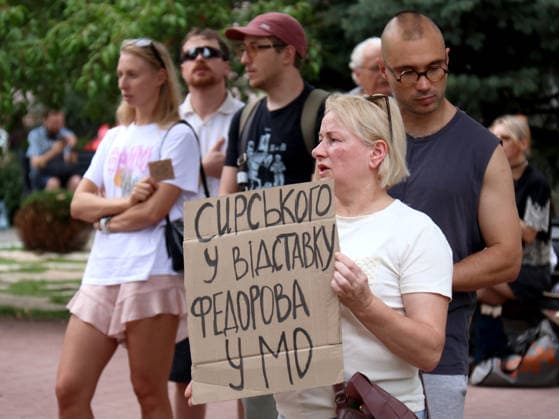 СИРСЬКОГО
У ВІДСТАВКУ
ФЕДОРОВА
У МО